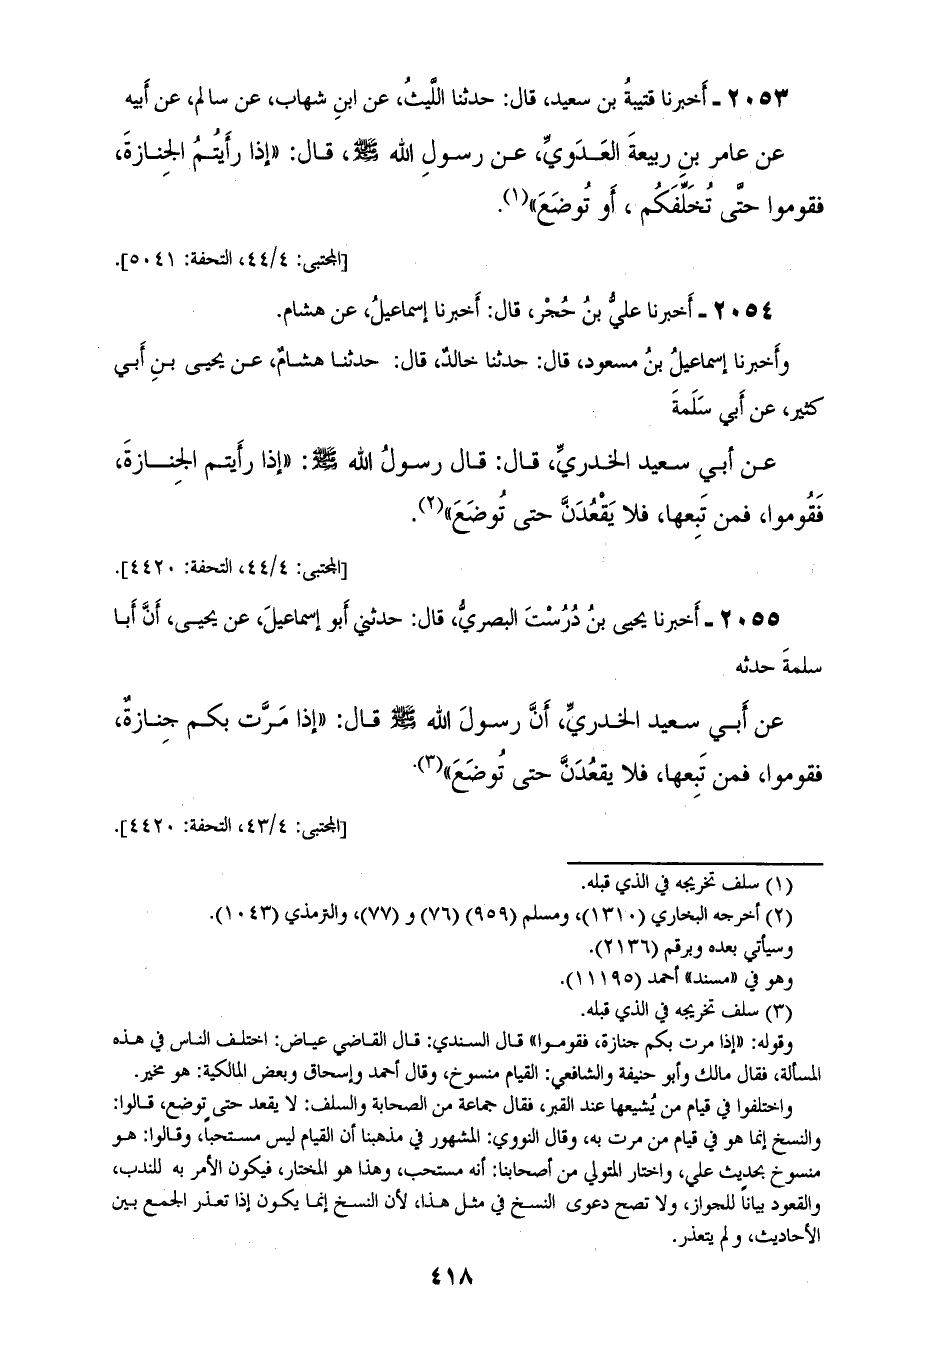 ٢٠٥٣ ـ أَخبرنا قتيبةُ بن سعيد، قال: حدثنا اللَّيثُ، عن ابنِ شهاب، عن سالم، عن أَبيه
عن عامر بنِ ربيعةَ العَدَويِّ، عن رسولِ الله ﷺ، قال: «إذا رأَيتُمُ الجِنازةَ،
فقوموا حتَّى تُخَلِّفَكُم، أَو تُوضَعَ»(١).
[المجتبى: ٤٤/٤، التحفة: ٥٠٤١].
٢٠٥٤ ـ أَخبرنا عليُّ بنُ حُجْر، قال: أَخبرنا إسماعيلُ، عن هشام.
وأَخبرنا إسماعيلُ بنُ مسعود، قال: حدثنا خالدٌ، قال: حدثنا هشامٌ، عن يحيى بنِ أَبي
كثير، عن أَبي سَلَمةَ
عن أبي سعيد الخدريِّ، قال: قال رسولُ الله ﷺ: «إذا رأَيتم الجِنازةَ،
فَقُوموا، فمن تَبِعها، فلا يَقْعُدَنَّ حتى تُوضَعَ»(٢).
[المجتبى: ٤٤/٤، التحفة: ٤٤٢٠].
٢٠٥٥ ـ أَخبرنا يحيى بنُ دُرُسْتَ البصريُّ، قال: حدثني أَبو إسماعيلَ، عن يحيى، أَنَّ أَبا
سلمةَ حدثه
عن أَبي سعيد الخدريِّ، أَنَّ رسولَ الله ﷺ قال: «إذا مَرَّت بكم جِنازةٌ،
فقوموا، فمن تَبِعها، فلا يقعُدَنَّ حتى تُوضَعَ»(٣).
[المجتبى: ٤٣/٤، التحفة: ٤٤٢٠].
(١) سلف تخريجه في الذي قبله.
(٢) أخرجه البخاري (١٣١٠)، ومسلم (٩٥٩) (٧٦) و (٧٧)، والترمذي (١٠٤٣).
وسيأتي بعده وبرقم (٢١٣٦).
وهو في «مسند» أحمد (١١١٩٥).
(٣) سلف تخريجه في الذي قبله.
وقوله: «إذا مرت بكم جنازة، فقوموا» قال السندي: قال القاضي عياض: اختلف الناس في هذه
المسألة، فقال مالك وأبو حنيفة والشافعي: القيام منسوخ، وقال أحمد وإسحاق وبعض المالكية: هو مخير.
واختلفوا في قيام من يُشيعها عند القبر، فقال جماعة من الصحابة والسلف: لا يقعد حتى توضع، قالوا:
والنسخ إنما هو في قيام من مرت به، وقال النووي: المشهور في مذهبنا أن القيام ليس مستحباً، وقالوا: هو
منسوخ بحديث علي، واختار المتولي من أصحابنا: أنه مستحب، وهذا هو المختار، فيكون الأمر به للندب،
والقعود بياناً للجواز، ولا تصح دعوى النسخ في مثل هذا، لأن النسخ إنما يكون إذا تعذر الجمع بين
الأحاديث، ولم يتعذر.
٤١٨